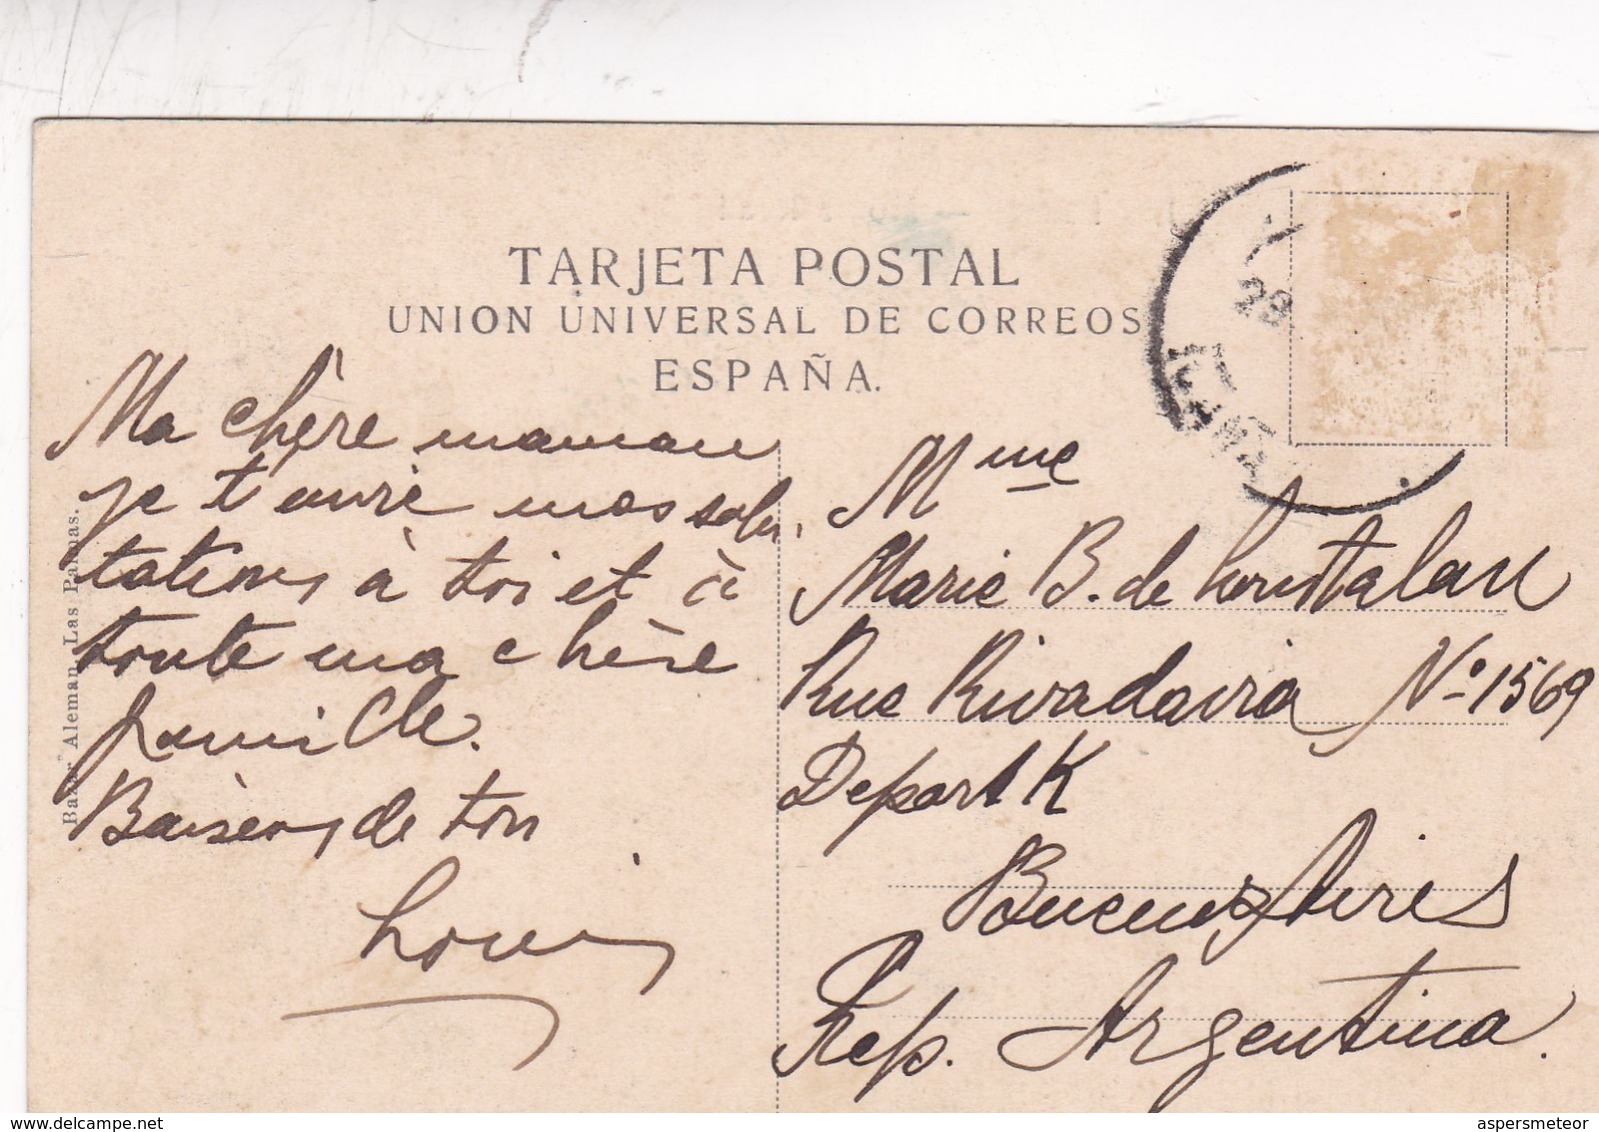 TARJETA POSTAL
UNION UNIVERSAL DE CORREOS
ESPAÑA.
Ma chère maman
je t'envoie mes salu-
tations à toi et à
toute ma chère
famille.
Baisers de ton
Louis
Mme
Marie B. de Loustalan
Rue Rivadavia No 1569
Depart K
Buenos Aires
Rep. Argentina.
Bazar Aleman, Las Palmas.
28
delcampe.net
aspersmeteor